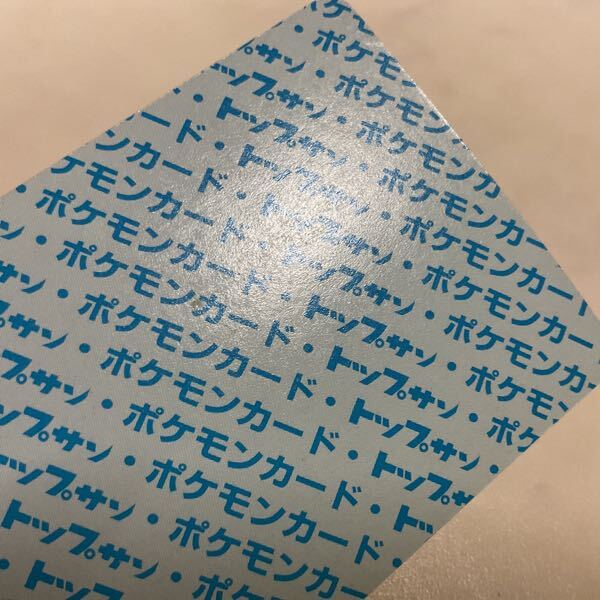 ポケモン
トップサン・ポケモンカ
トップサン・ポケモンカード
ポケモンカード・トップサン・ポケモンカード
ポケモンカード・トップサン・ポケモンカード
ポケモンカード・トップサン・ポケモンカー
ポケモンカード・トップサン・ポケモン
トップサン・ポケモンカード・トップサン・ポケ
トップサン・ポケモンカード・トップサン
トップサン・ポケモンカード・トップサン
トップサン・ポケモンカード・ト
トップサン・ポケモンカー